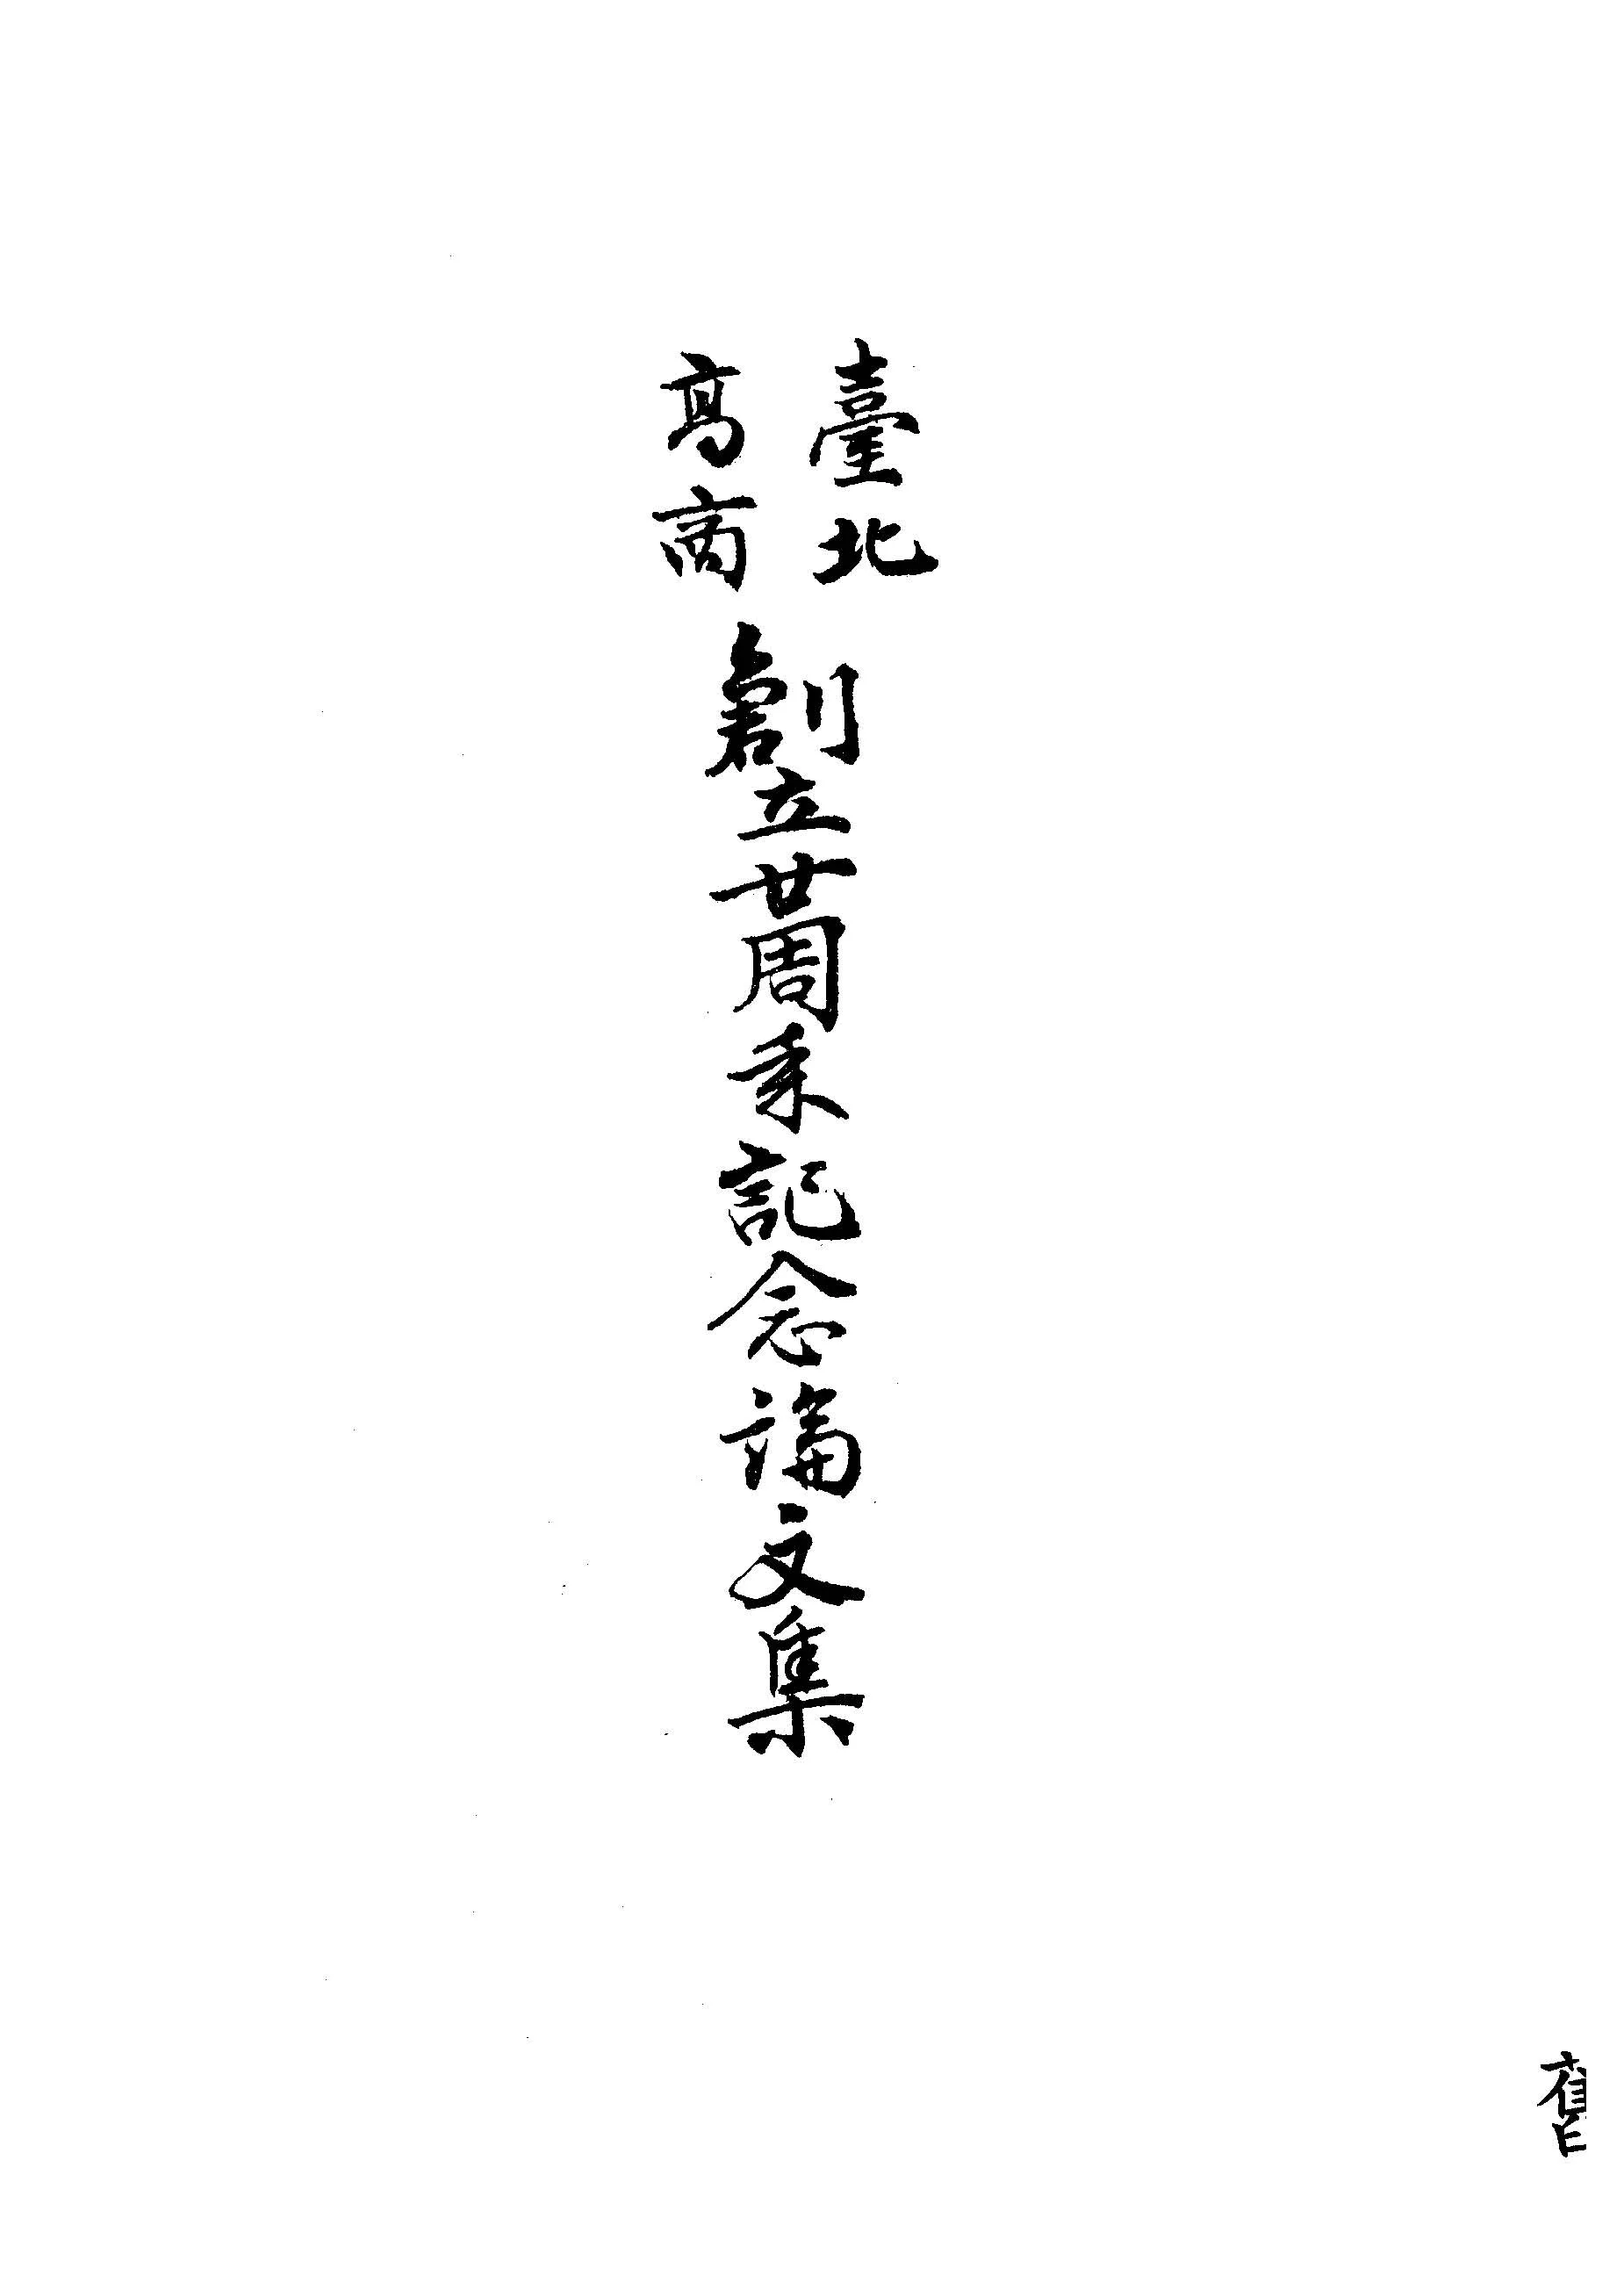 臺北
高商
創立廿周年記念論文集
舊